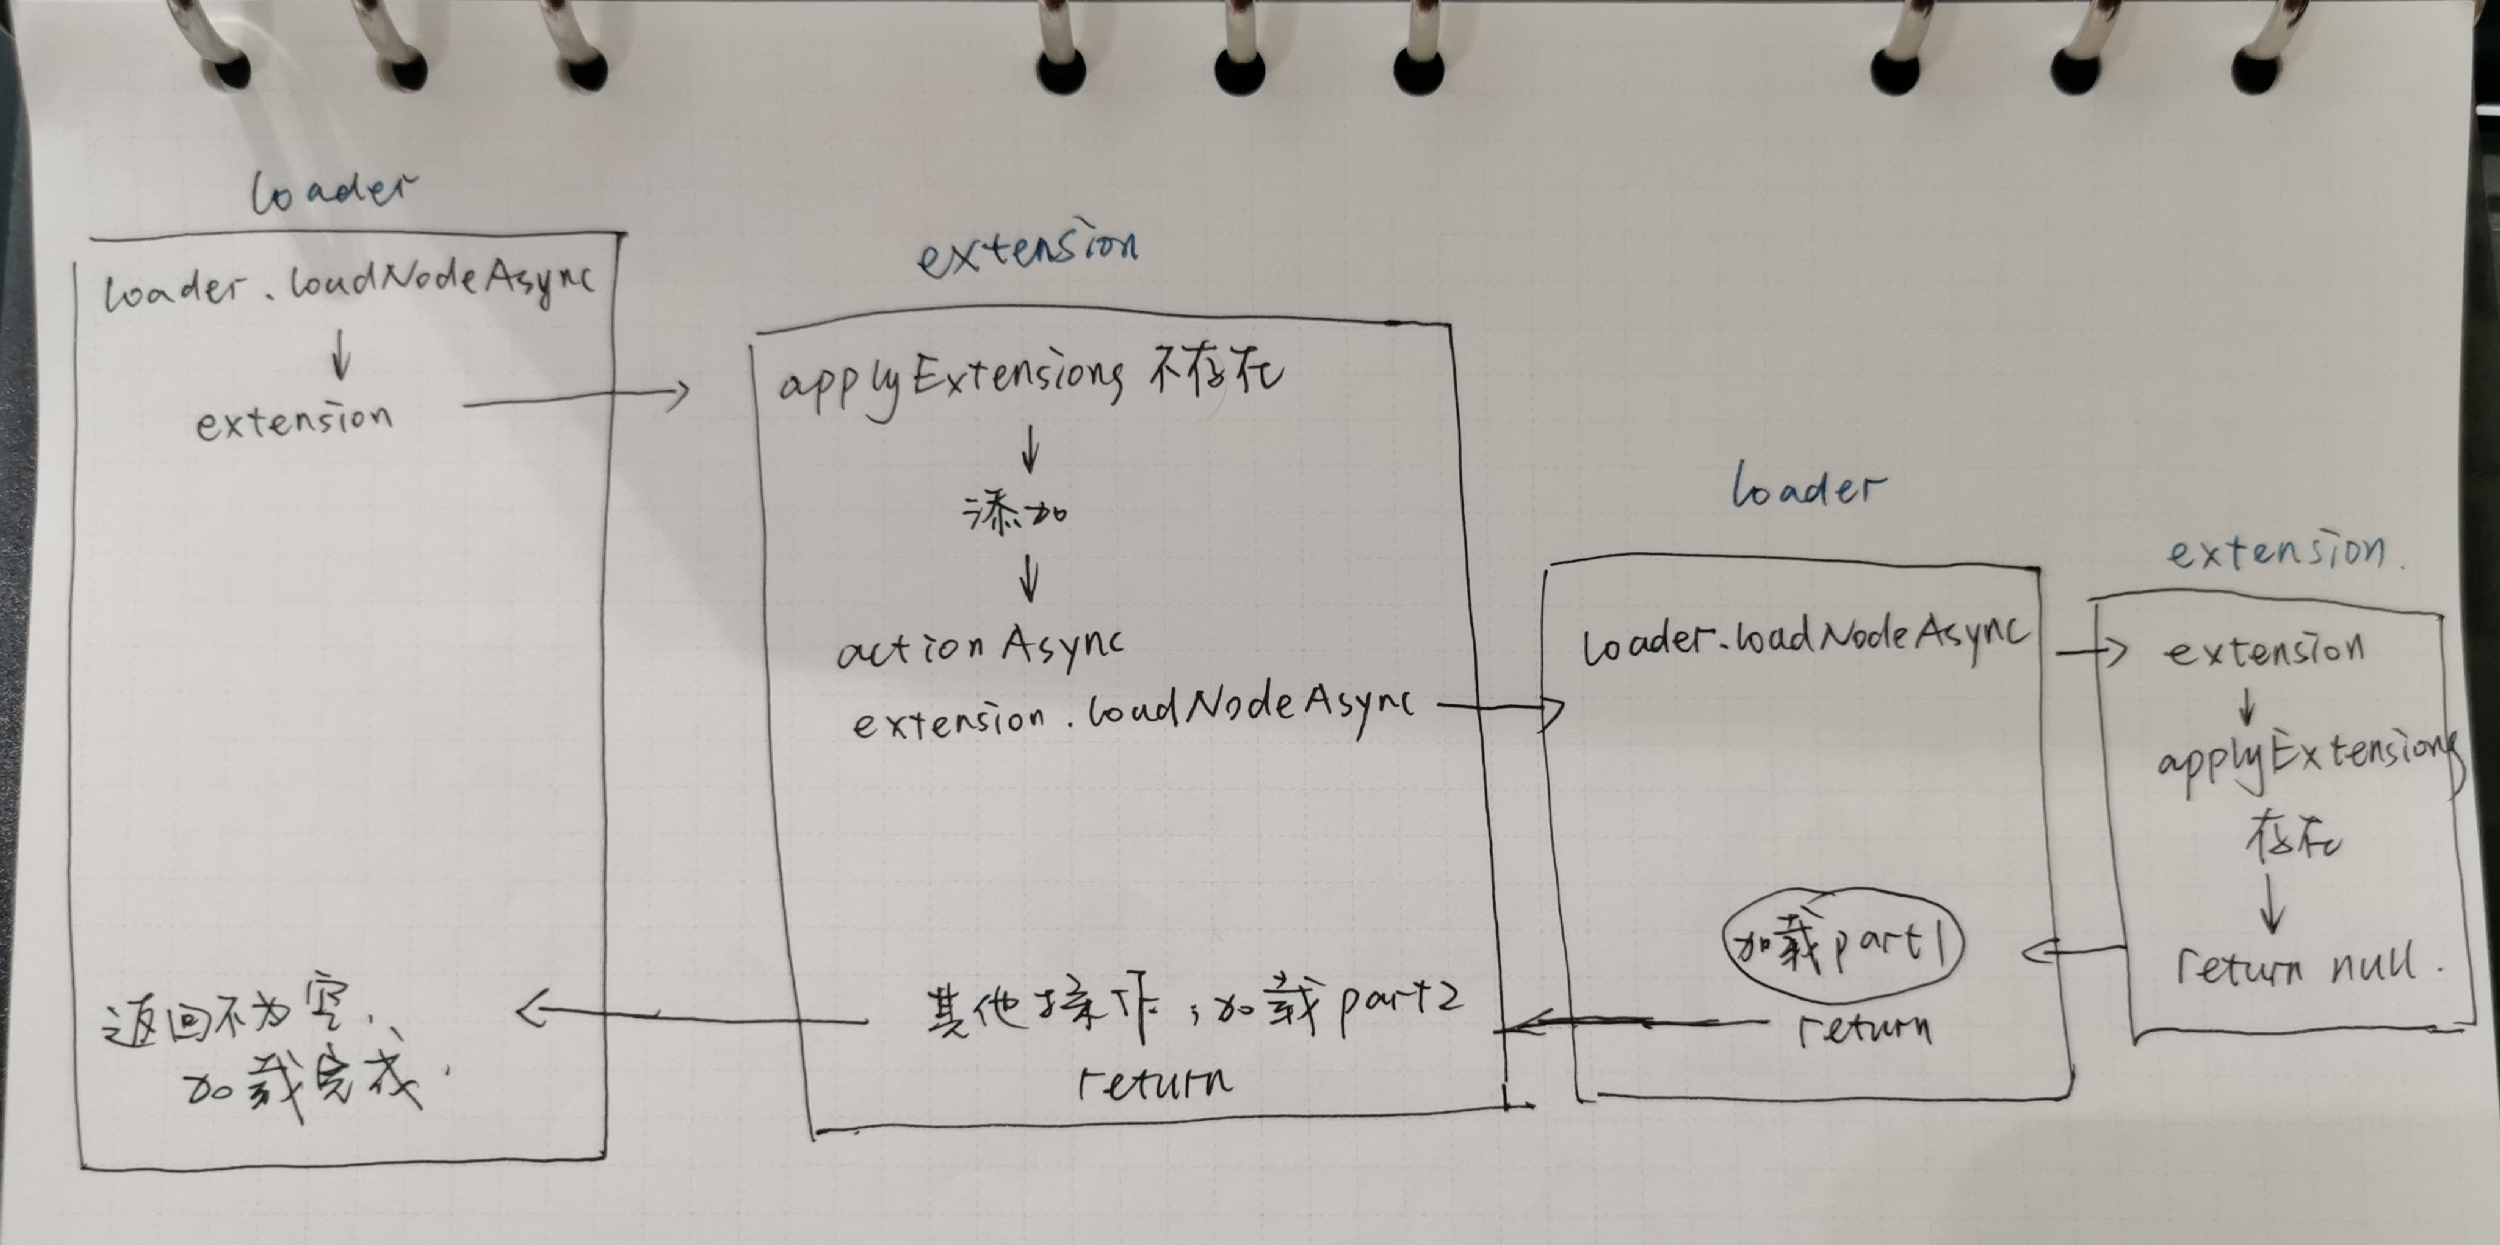 loader
loader.loadNodeAsync
extension
返回不为空,
加载完成.
extension
applyExtensions 不存在
添加
actionAsync
extension.loadNodeAsync
其他操作;加载part2
return
loader
loader.loadNodeAsync
加载part1
return
extension.
extension
applyExtensions
存在
return null.